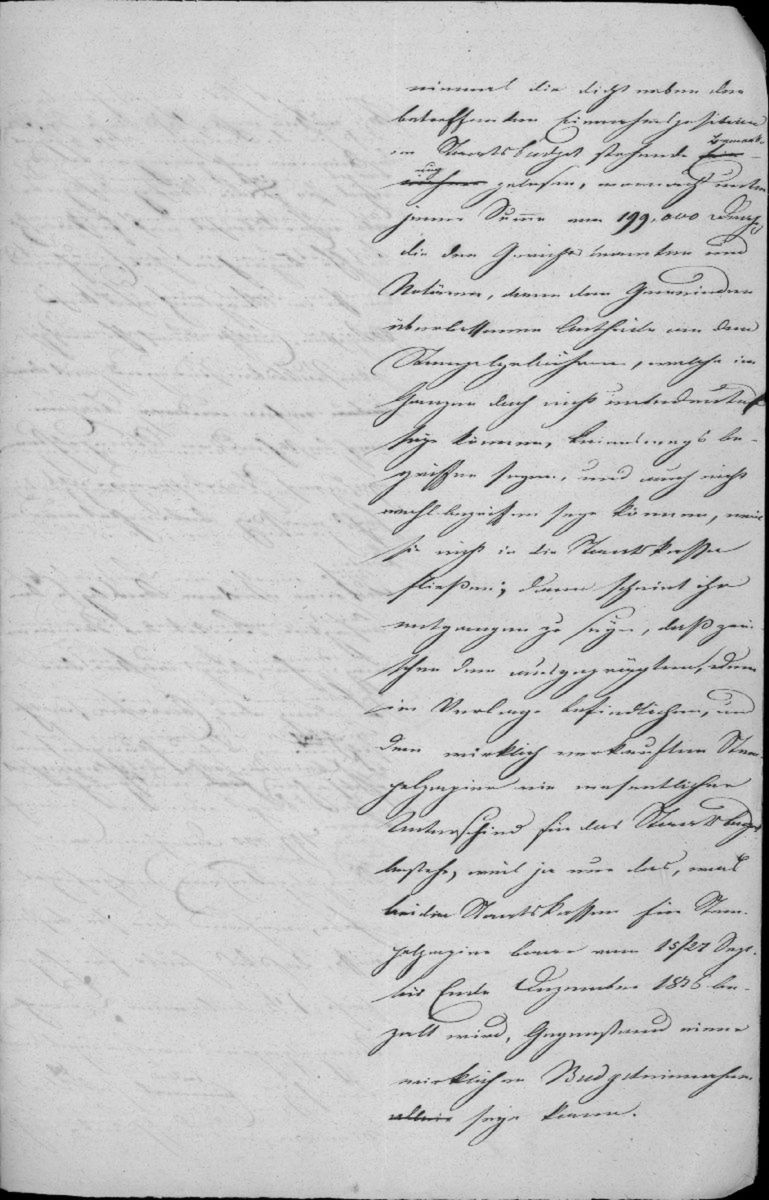 einmal die dicht neben der
betreffenden Einnahmsposition
im Staatsbudget stehende Bemerk-
ung gelesen, wornach unter
jener Summe von 199,000 Drach.
die den Gerichtsbeamten und
Notären, dann den Gemeinden
überlassenen Antheile an den
Stempelgebühren, welche im
Ganzen doch nicht unbedeutend
seyn können, keineswegs be-
griffen seyen, und auch nicht
wohl begriffen seyn können, weil
sie nicht in die Staatskasse
fließen; dann scheint ihr
entgangen zu seyn, daß zwi-
schen dem ausgeprägten, dem
im Verlage befindlichen, und
dem wirklich verkauften Stem-
pelpapier ein wesentlicher
Unterschied für das Staatsbudget
bestehe, weil ja nur das, was
bei den Staatskassen für Stem-
pelpapier baar vom 15/27 Sept.
bis Ende Dezember 1836 be-
zalt wird, Gegenstand einer
wirklichen Budgetseinnahme
allein seyn kann.